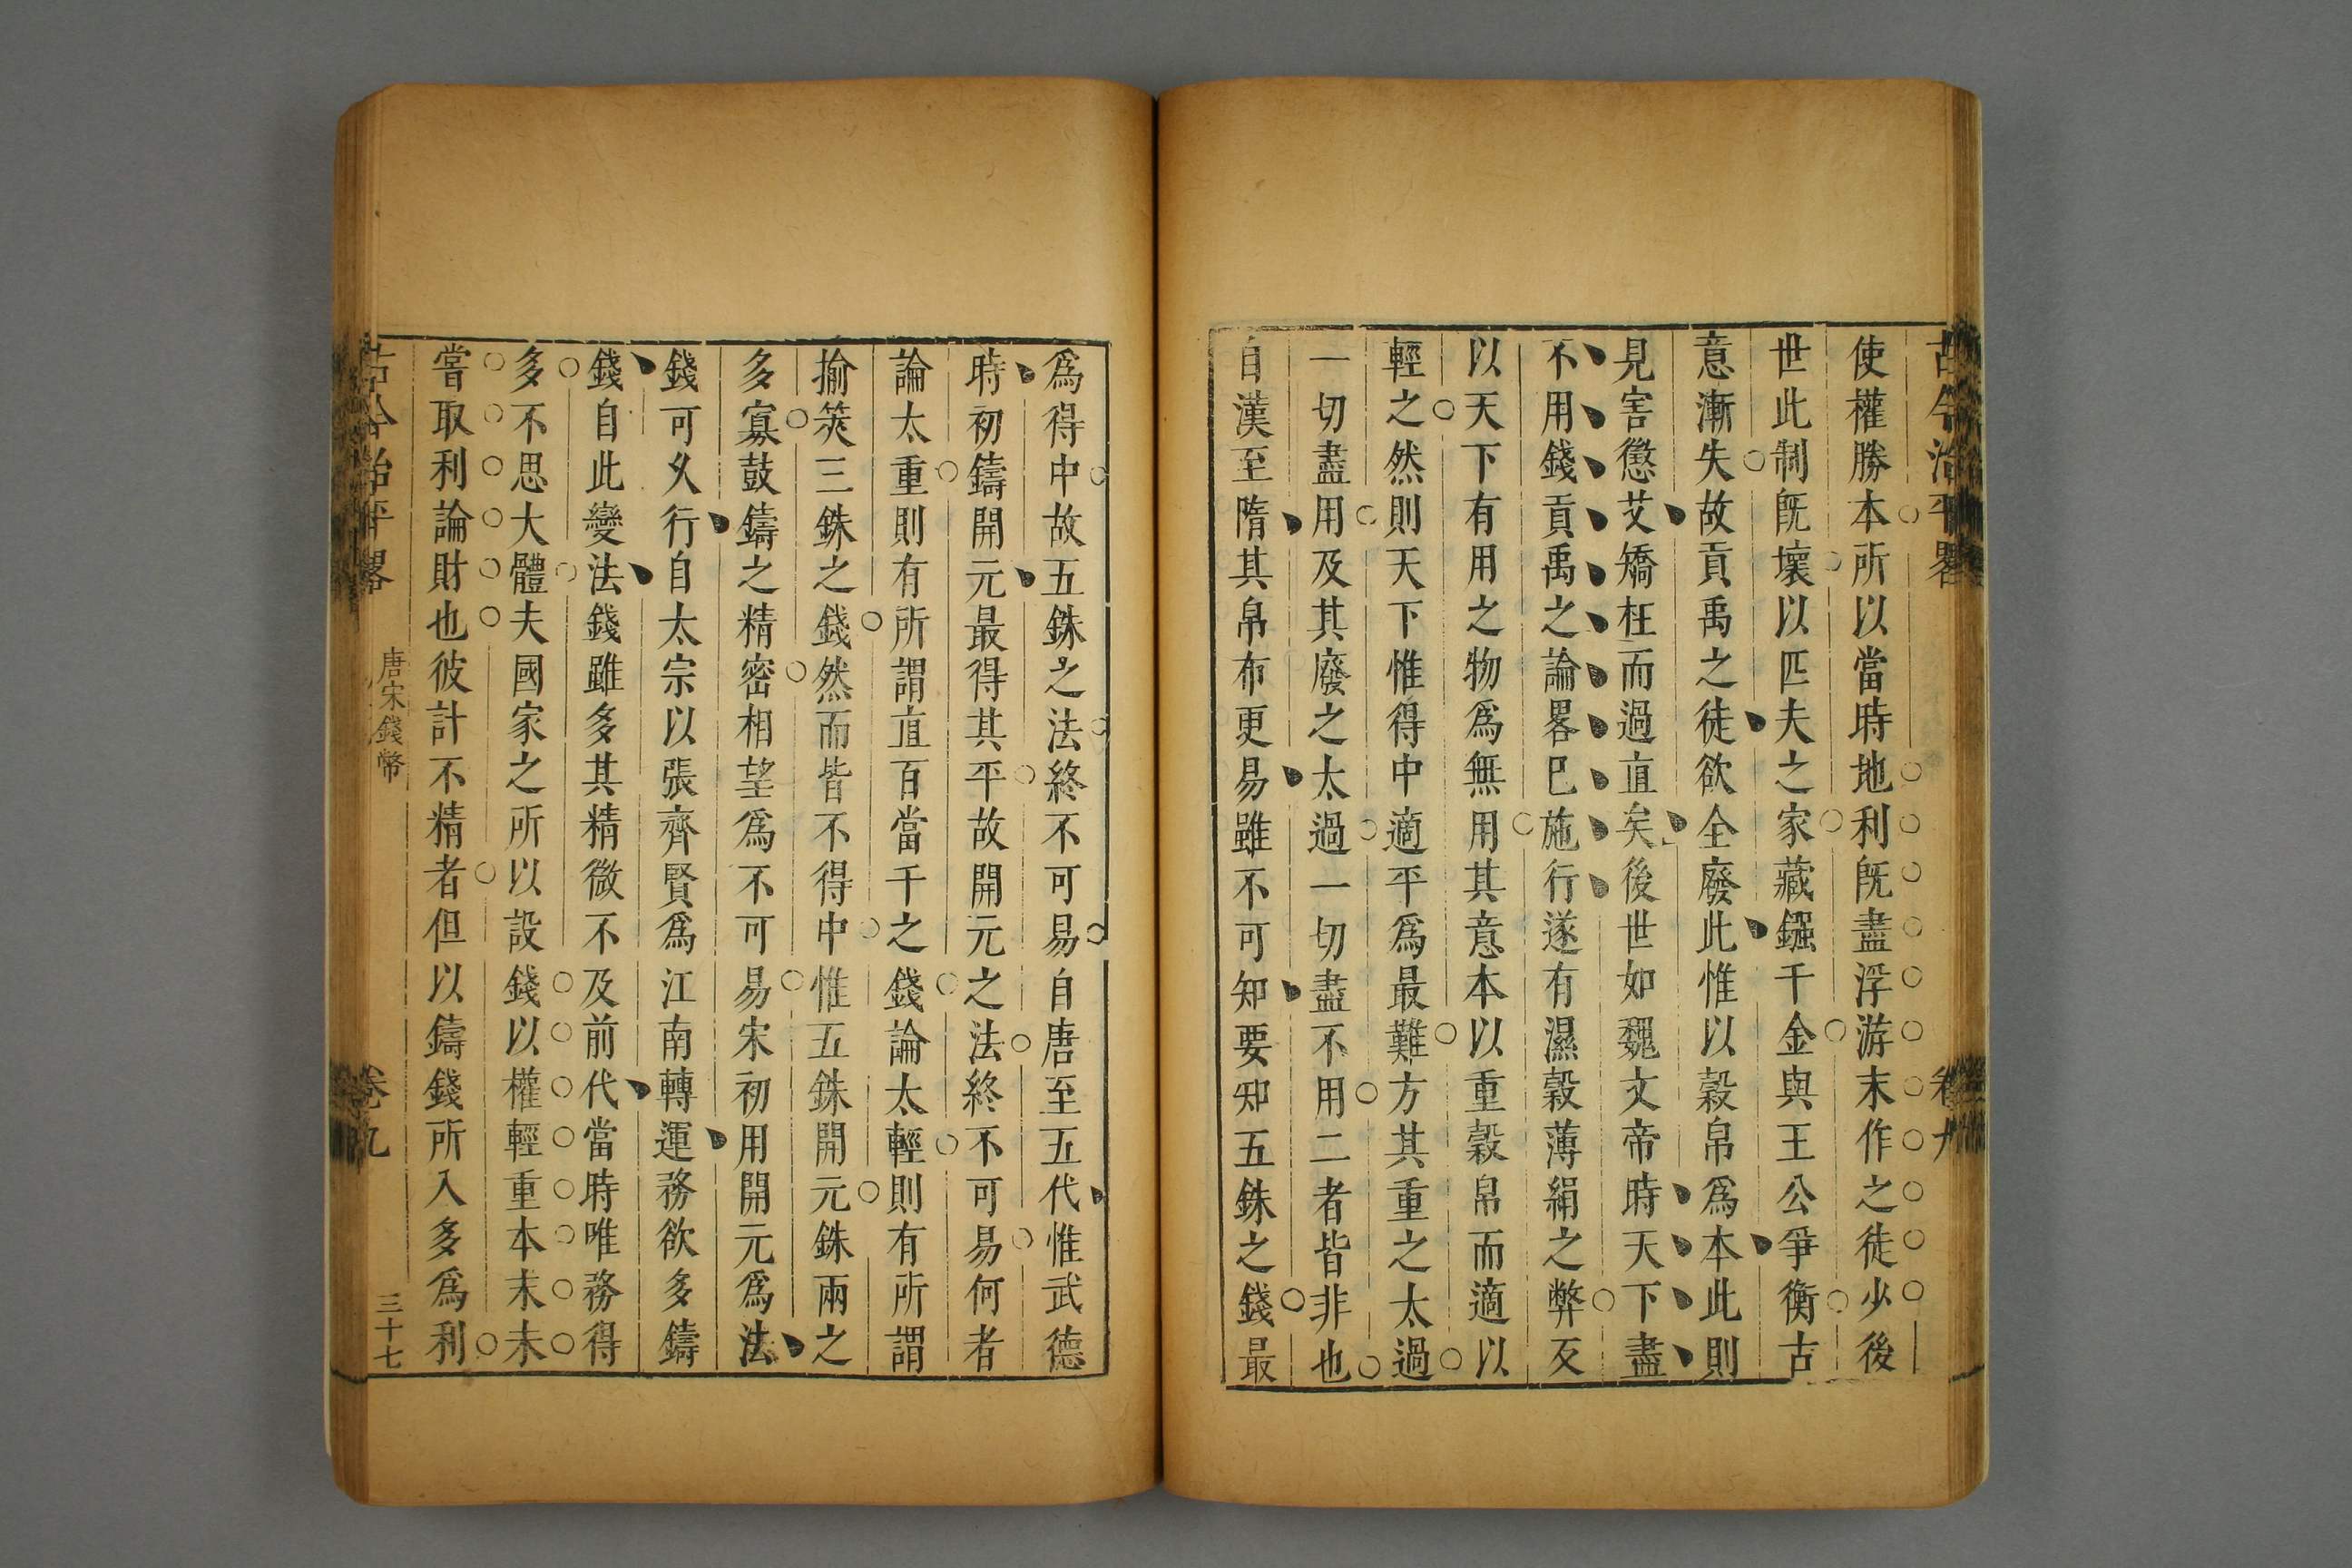 古今治平畧
卷九
使權勝本所以當時地利旣盡浮游末作之徒少後
世此制旣壞以匹夫之家藏鏹千金與王公爭衡古
意漸失故貢禹之徒欲全廢此惟以穀帛爲本此則
見害懲艾矯枉而過直矣後世如魏文帝時天下盡
不用錢貢禹之論畧巳施行遂有濕穀薄絹之弊反
以天下有用之物爲無用其意本以重穀帛而適以
輕之然則天下惟得中適平爲最難方其重之太過
一切盡用及其廢之太過一切盡不用二者皆非也
自漢至隋其帛布更易雖不可知要知五銖之錢最
爲得中故五銖之法終不可易自唐至五代惟武德
時初鑄開元最得其平故開元之法終不可易何者
論太重則有所謂直百當千之錢論太輕則有所謂
揄莢三銖之錢然而皆不得中惟五銖開元銖兩之
多寡鼓鑄之精密相望爲不可易宋初用開元爲法
錢可乆行自太宗以張齊賢爲江南轉運務欲多鑄
錢自此變法錢雖多其精微不及前代當時唯務得
多不思大體夫國家之所以設錢以權輕重本末未
嘗取利論財也彼計不精者但以鑄錢所入多爲利
古今治平畧
唐宋錢幣
卷九
三十七